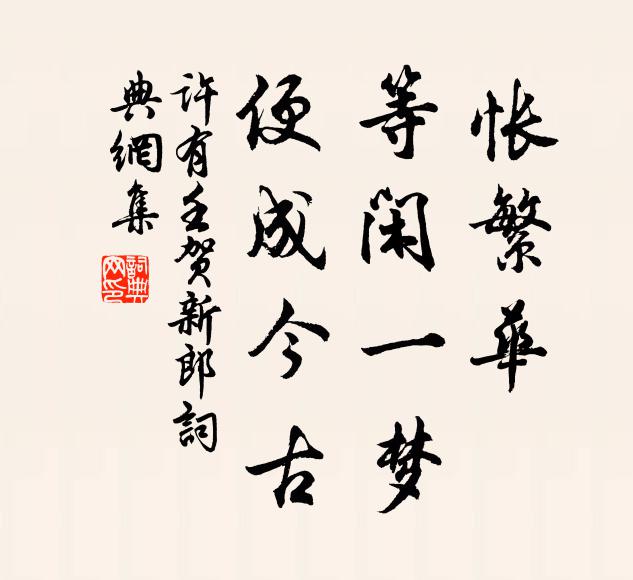 怅繁华
等闲一梦
便成今古
许有壬贺新郎詞
典網集
詞典网印